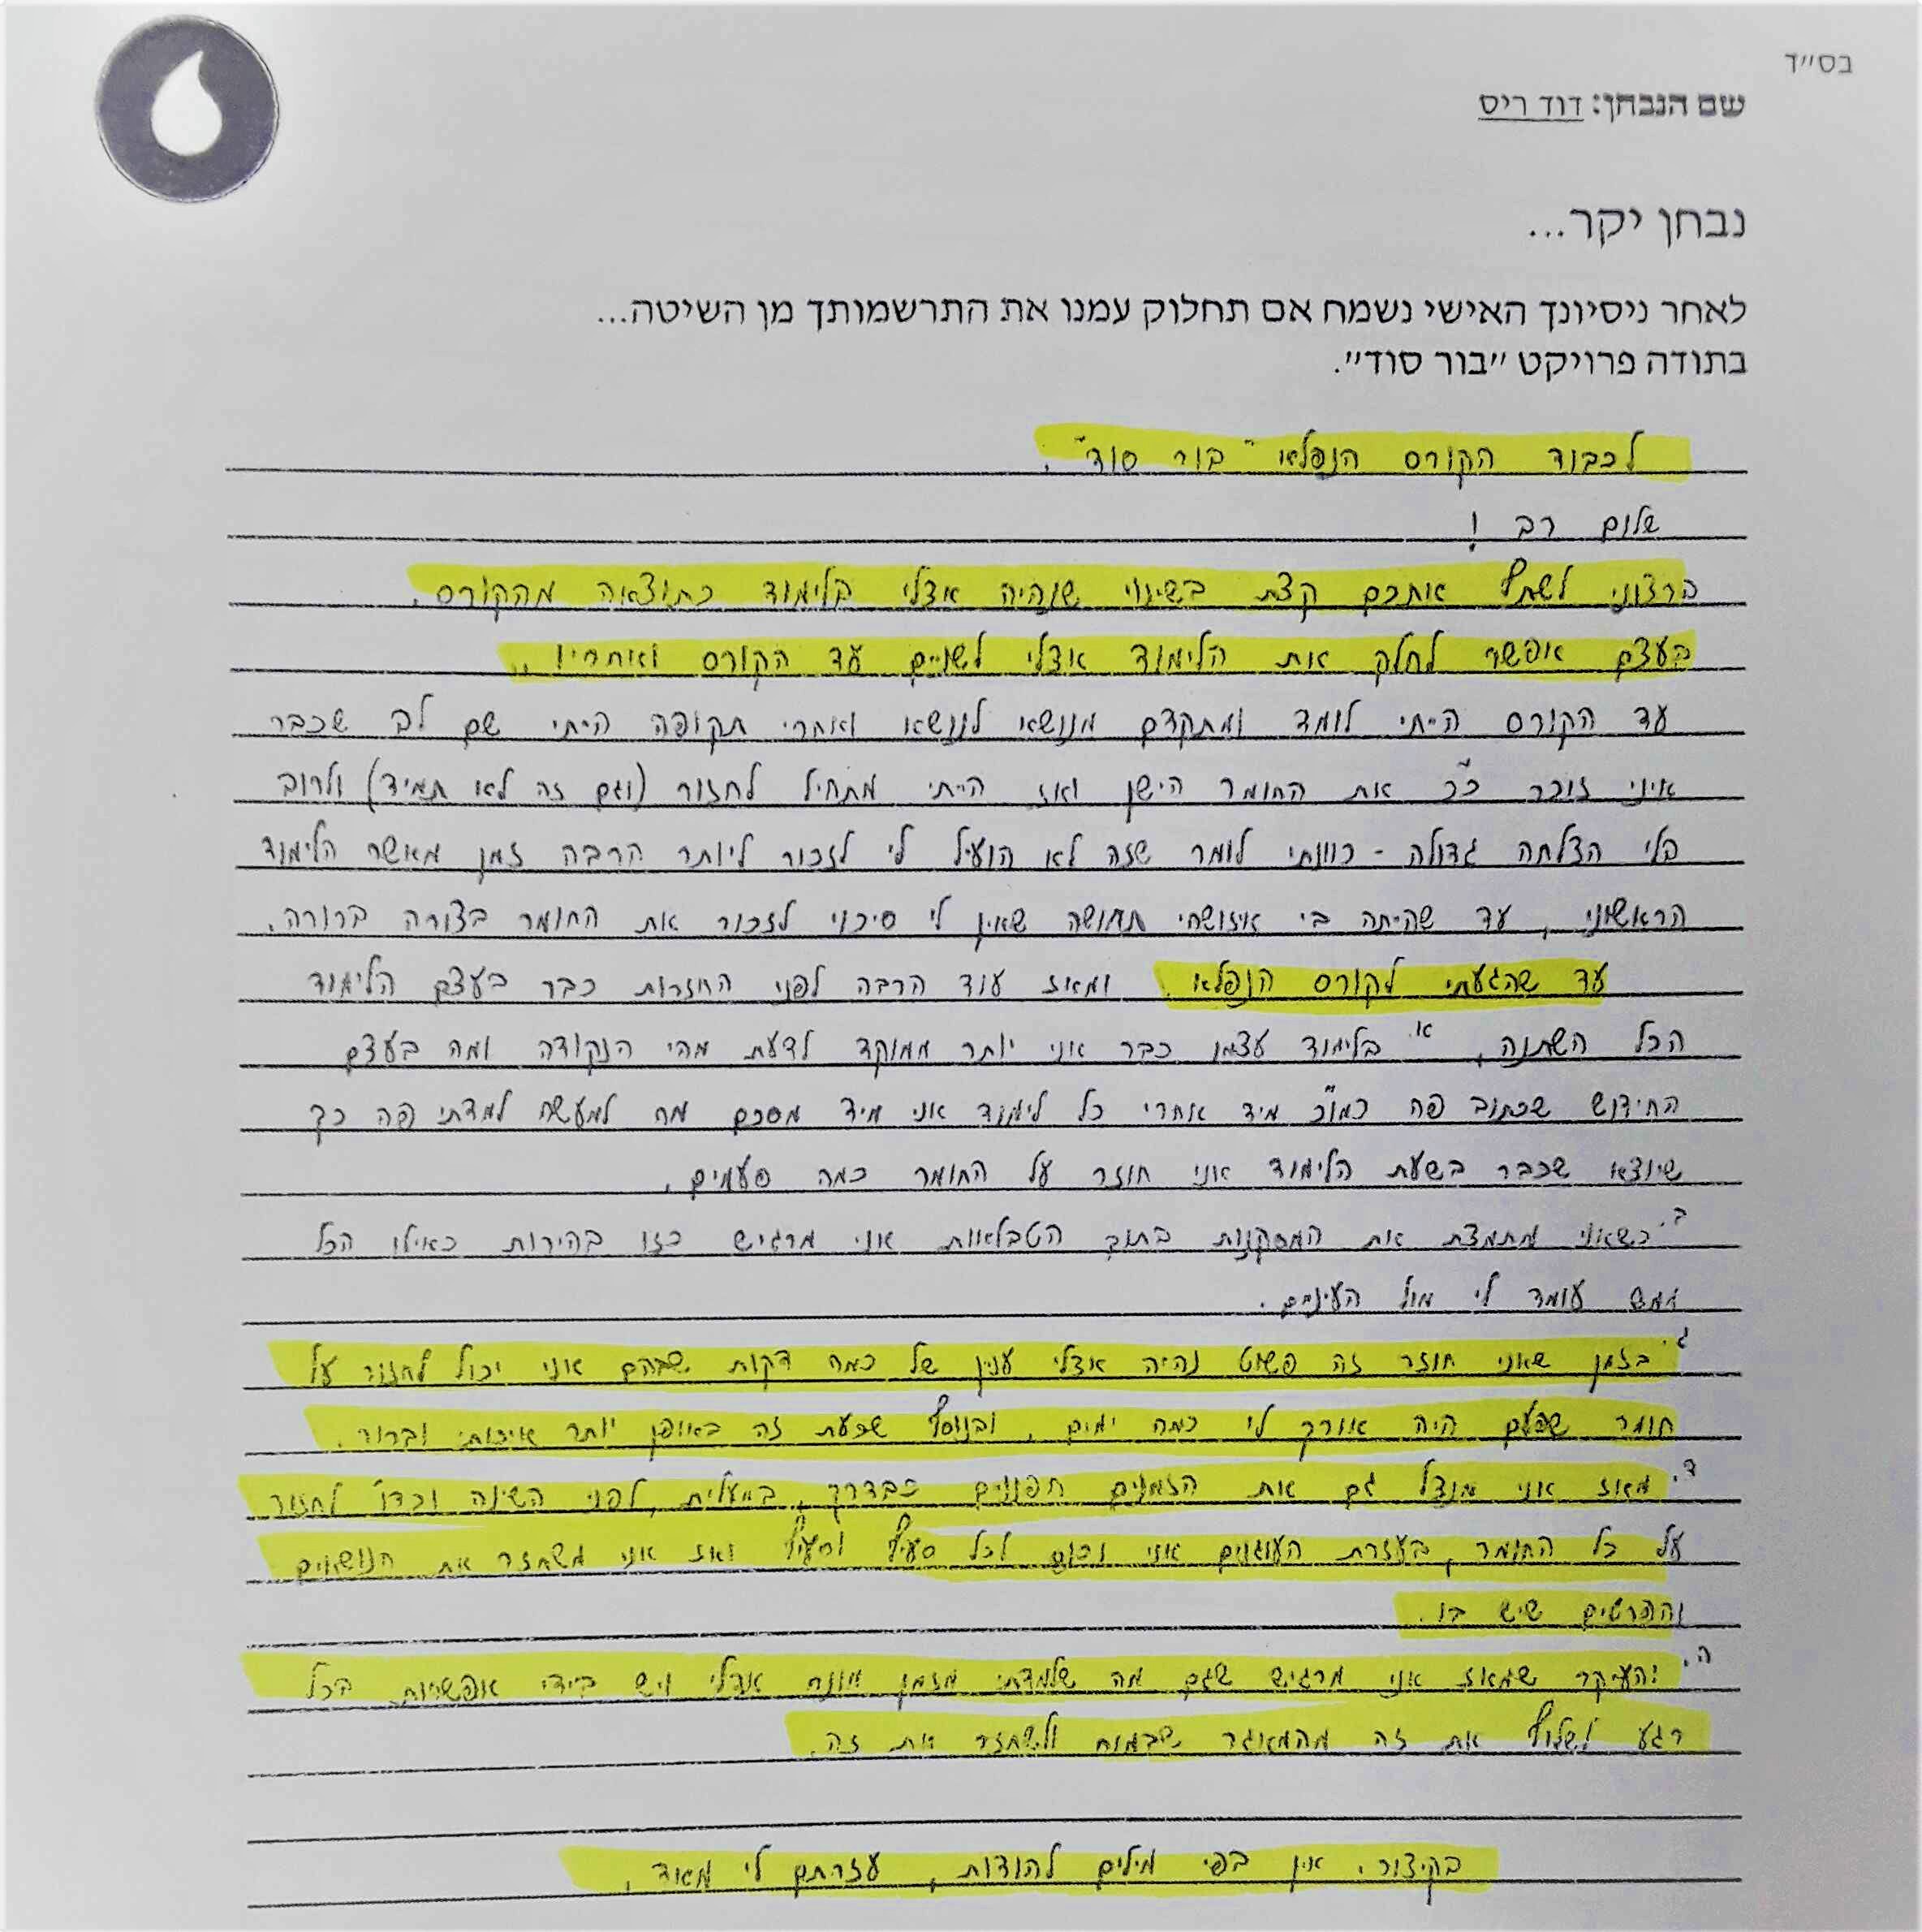 בס״ד
שם הנבחן: דוד ריס
נבחן יקר...
לאחר ניסיונך האישי נשמח אם תחלוק עמנו את התרשמותך מן השיטה...
בתודה פרויקט ״בור סוד״.
לכבוד הקורס הנפלא "בור סוד".
שלום רב !
ברצוני לשתף אתכם קצת בשינוי שנהיה אצלי בלימוד כתוצאה מהקורס.
בעצם אפשר לחלק את הלימוד אצלי לשניים עד הקורס ואחריו..
עד הקורס הייתי לומד ומתקדם מנושא לנושא ואחרי תקופה הייתי שם לב שכבר
איני זוכר כ"כ את החומר הישן ואז הייתי מתחיל לחזור (וגם זה לא תמיד) ולרוב
בלי הצלחה גדולה - כוונתי לומר שזה לא הועיל לי לזכור ליותר הרבה זמן מאשר הלימוד
הראשוני, עד שהייתה בי איזושהי תחושה שאין לי סיכוי לזכור את החומר בצורה ברורה.
עד שהגעתי לקורס הנפלא. ומאז עוד הרבה לפני החזרות כבר בעצם הלימוד
הכל השתנה, א' בלימוד עצמו כבר אני יותר ממוקד לדעת מהי הנקודה ומה בעצם
החידוש שכתוב פה כמו"כ מיד אחרי כל לימוד אני מיד מסכם מה למעשה למדתי פה כך
שיוצא שכבר בשעת הלימוד אני חוזר על החומר כמה פעמים.
ב'. כשאני מתמצת את המסקנות בתוך הטבלאות אני מרגיש כזו בהירות כאילו הכל
ממש עומד לי מול העיניים.
ג'. בזמן שאני חוזר זה פשוט נהיה אצלי ענין של כמה דקות שבהם אני יכול לחזור על
חומר שפעם היה אורך לי כמה ימים, ובנוסף שכעת זה באופן יותר איכותי וברור.
ד'. מאז אני מנצל גם את הזמנים הפנויים בדרך, במעלית, לפני השינה וכדו' לחזור
על כל החומר, בעזרת העוגנים אני נכנס לכל סעיף וסעיף ואז אני משחזר את הנושאים
והפרטים שיש בו.
ה'. והעיקר שמאז אני מרגיש שגם מה שלמדתי מזמן מונח אצלי ויש בידי אפשרות בכל
רגע לשלוף את זה מהמאגר שבמוח ולשחזר את זה.
בקיצור, אין בפי מילים להודות, עזרתם לי מאוד.